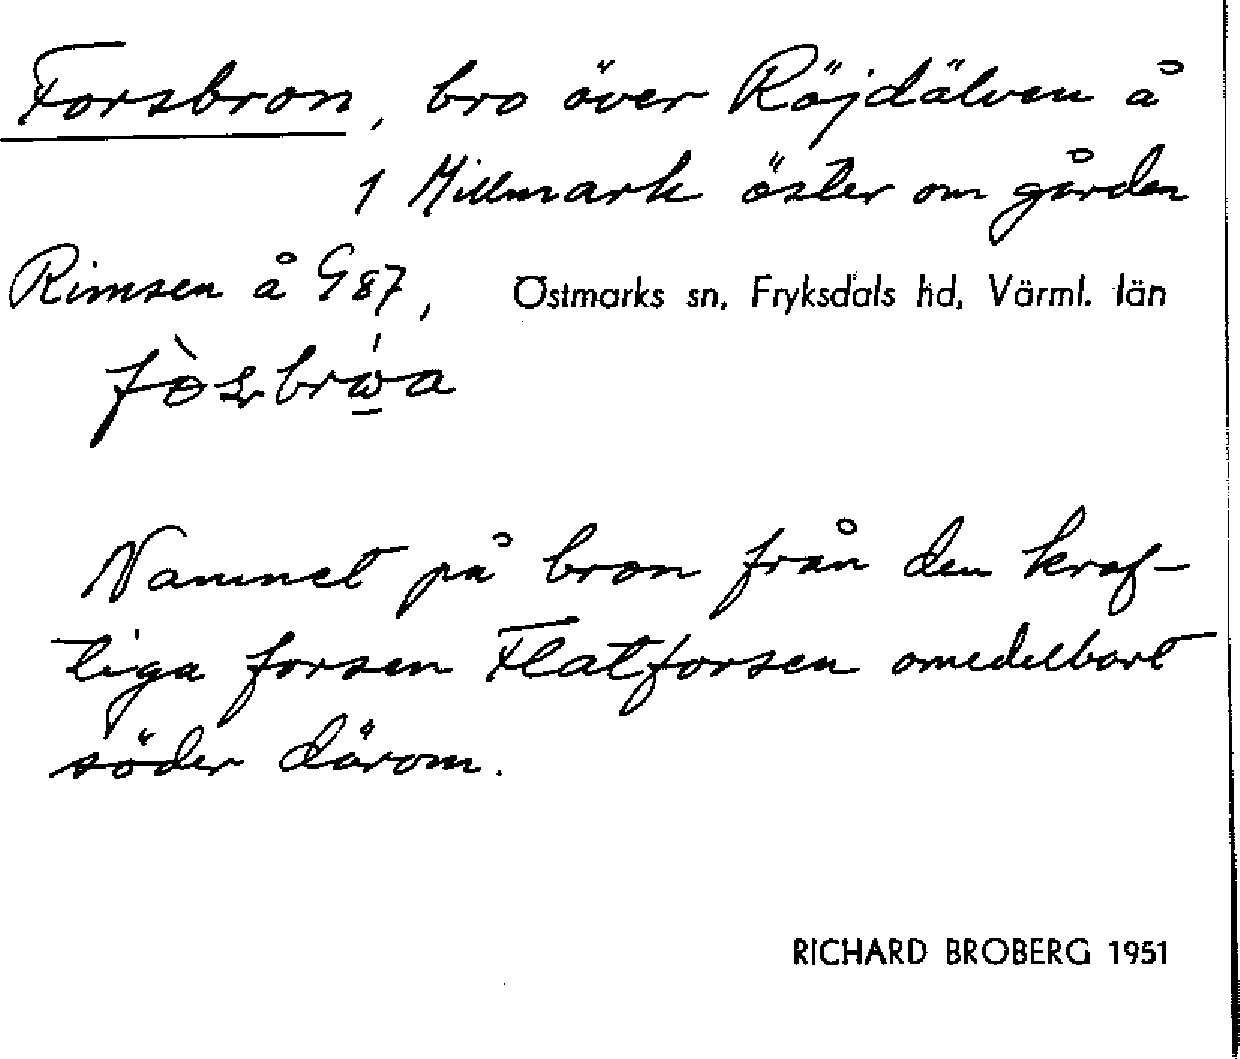 Forsbron, bro över Röjdälven å
1 Millmark öster om gården
Rimsen å G 87, Östmarks sn, Fryksdals hd, Värml. län
Namnet på bron från den kraf-
tiga forsen Flatforsen omedelbart
söder därom.
RICHARD BROBERG 1951